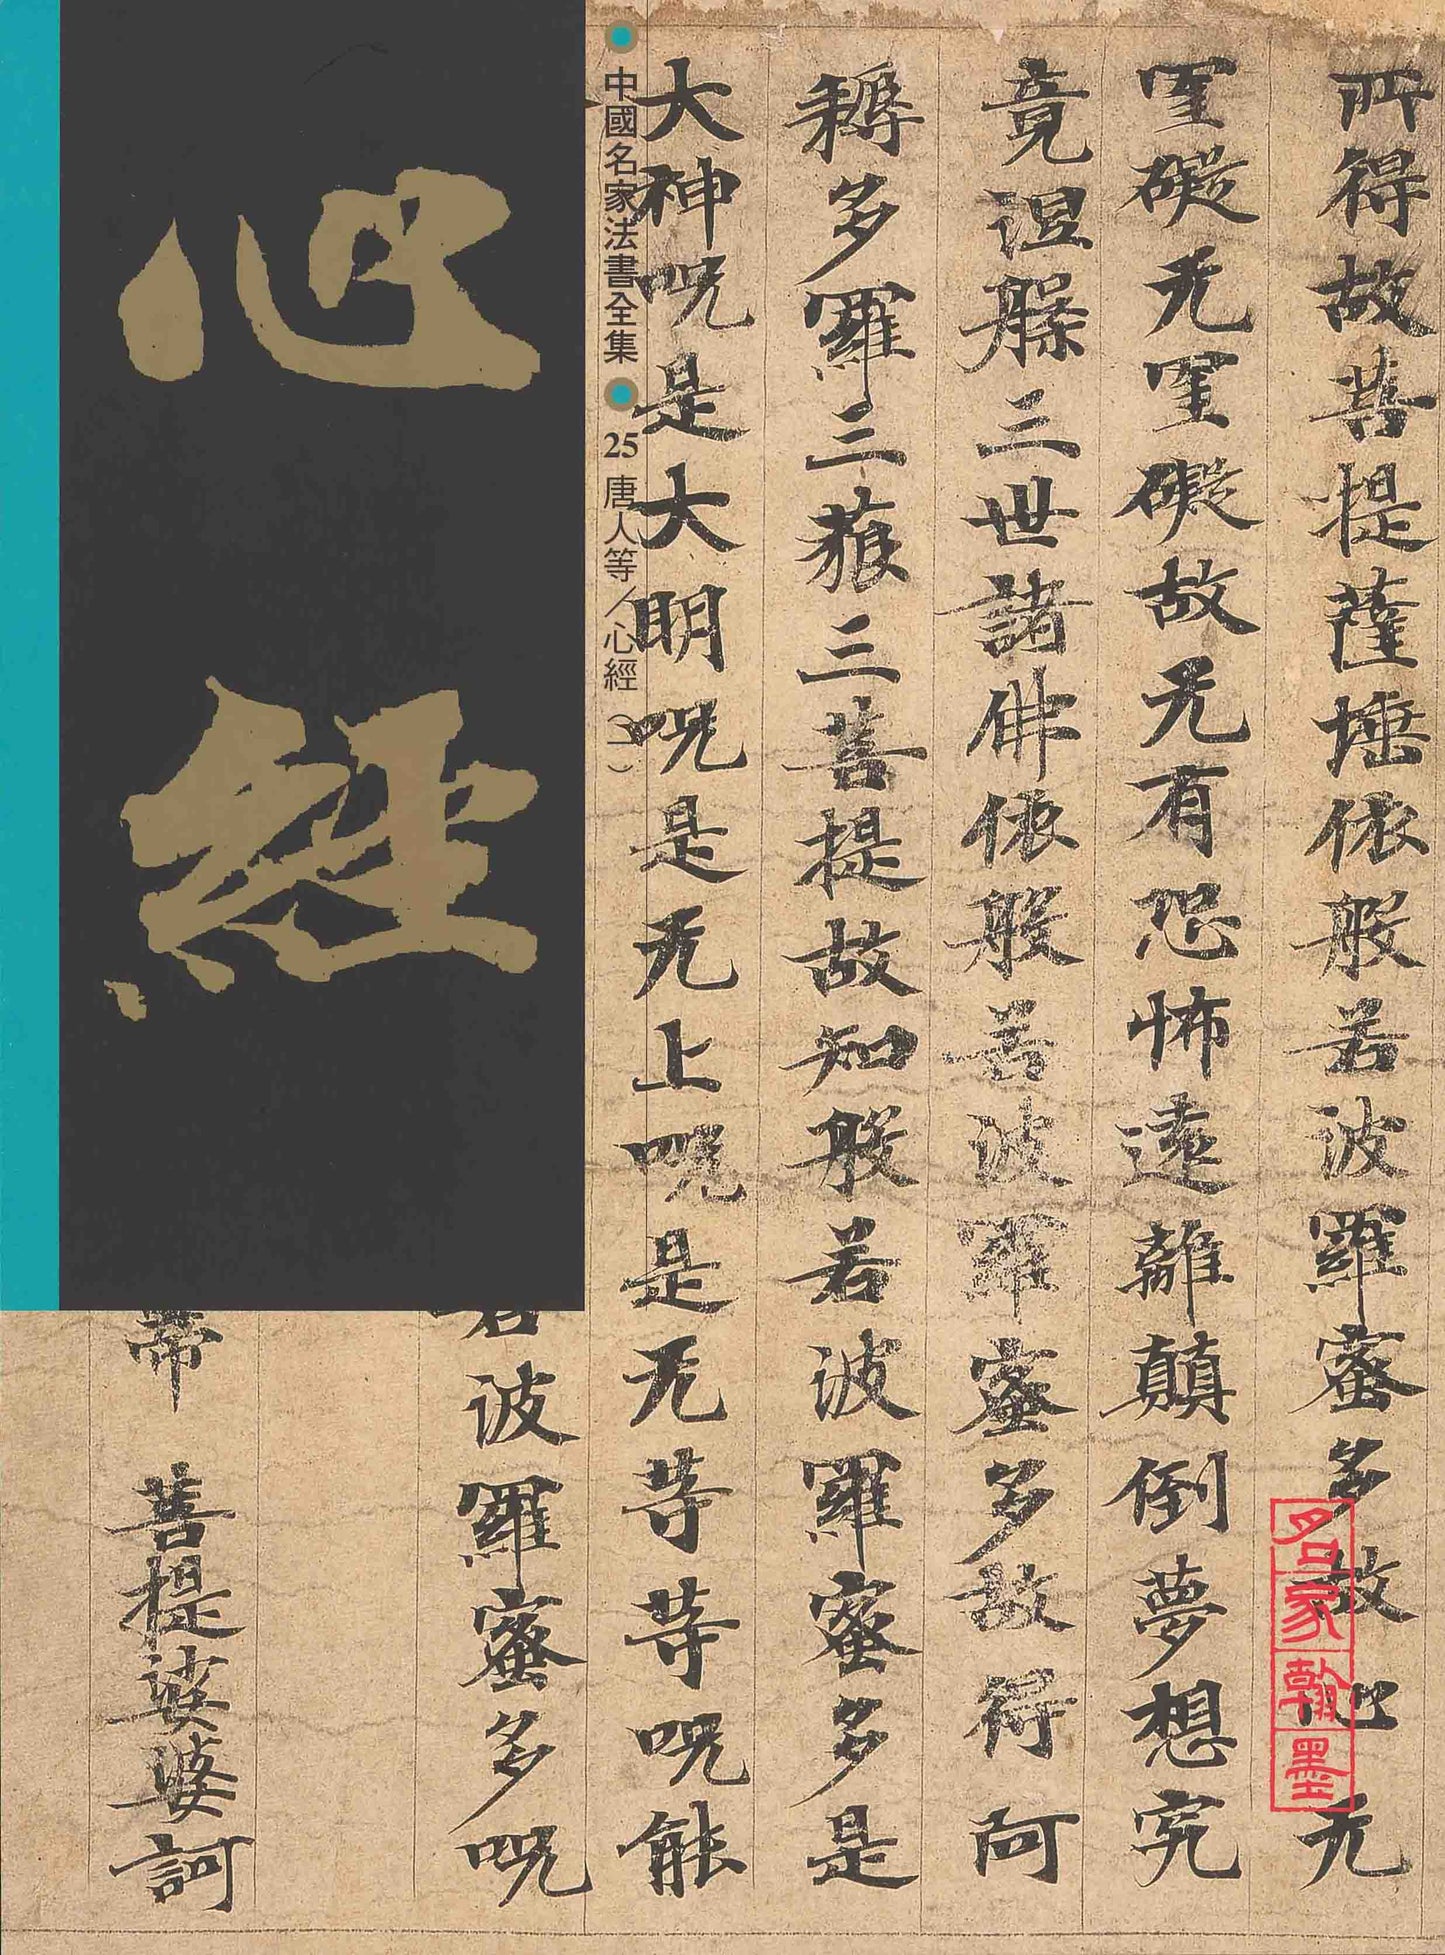 心經
中國名家法書全集
25 唐人等/心經(一)
所得故菩提薩埵依般若波羅蜜多故心无
罣礙无罣礙故无有恐怖遠離顛倒夢想究
竟涅槃三世諸佛依般若波羅蜜多故得阿
耨多羅三藐三菩提故知般若波羅蜜多是
大神呪是大明呪是无上呪是无等等呪能
若波羅蜜多呪
帝 菩提娑婆訶
名家翰墨